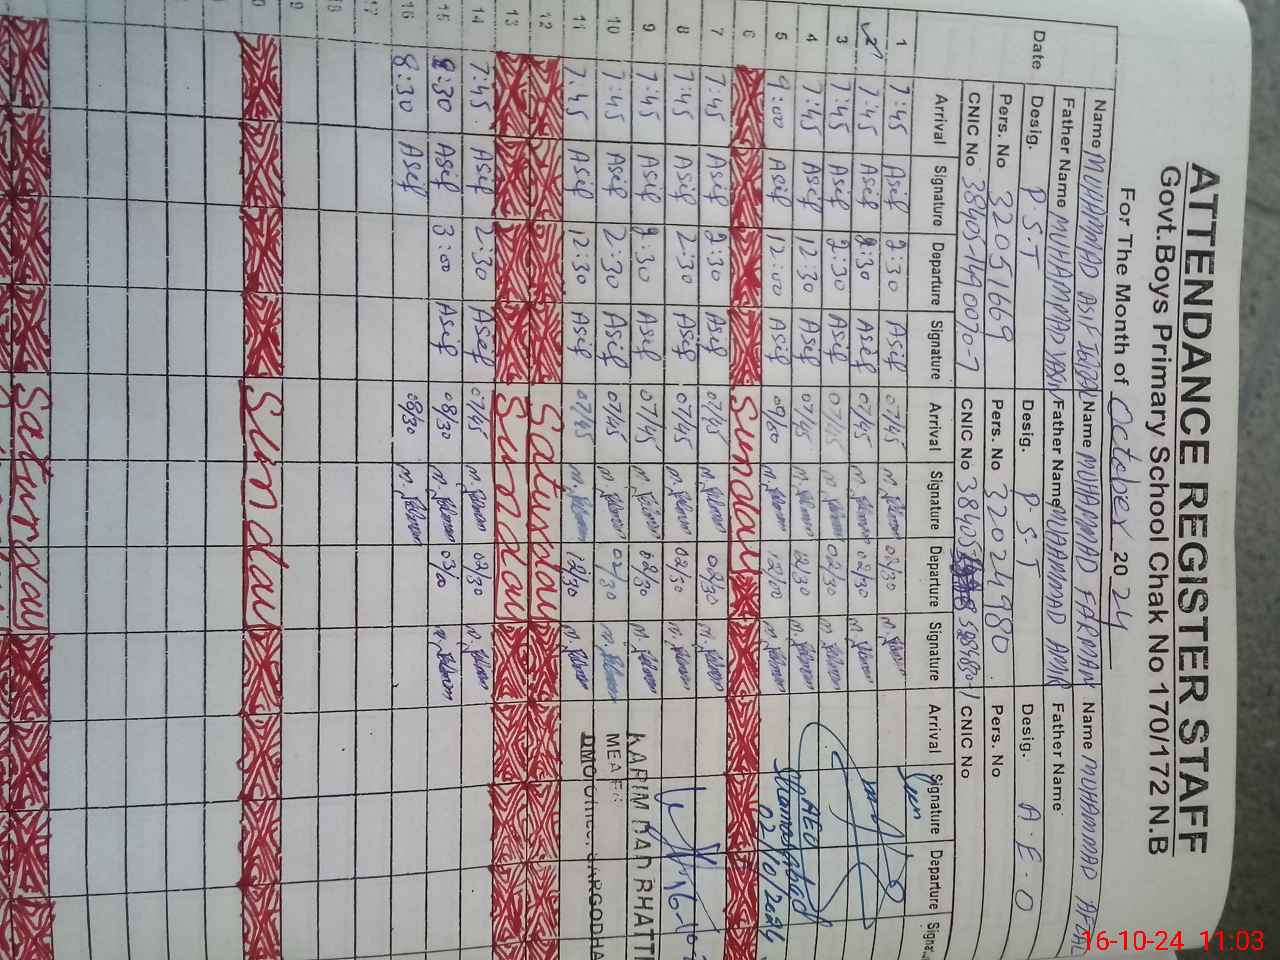 ATTENDANCE REGISTER STAFF
Govt.Boys Primary School Chak No 170/172 N.B
For The Month of October 2024
Name MUHAMMAD ASIF IQBAL Name MUHAMMAD FARMAN Name MUHAMMAD AFZAL
Father Name MUHAMMAD YASIN Father Name MUHAMMAD AMIR Father Name
Date Desig. P.S.T Desig. P S T Desig. A.E.O
Pers. No 32051669 Pers. No 32024980 Pers. No
CNIC No 38405-1490070-7 CNIC No 38403 CNIC No
Arrival Signature Departure Signature Arrival Signature Departure Signature Arrival Signature Departure Signatu
1 7:45 Asif 2:30 Asif 07/45 02/30
2 7:45 Asif 2:30 Asif 07/45 02/30
3 7:45 Asif 2:30 Asif 07/45 02/30
4 7:45 Asif 12:30 Asif 07/45 12/30 AEO
5 9:00 Asif 12:00 Asif 09/00 12/00 02/10/2024
6 Sunday
7 7:45 Asif 2:30 Asif 07/45 02/30
8 7:45 Asif 2:30 Asif 07/45 02/30
9 7:45 Asif 2:30 Asif 07/45 02/30 KARIM DAD BHATTI
10 7:45 Asif 2:30 Asif 07/45 02/30 MEA
11 7:45 Asif 12:30 Asif 07/45 12/30 DMO Office, SARGODHA
12 Saturday
13 Sunday
14 7:45 Asif 2:30 Asif 07/45 02/30
15 8:30 Asif 3:00 Asif 08/30 03/00
16 8:30 Asif 08/30
17
18
19
Sunday
Saturday
16-10-24 11:03